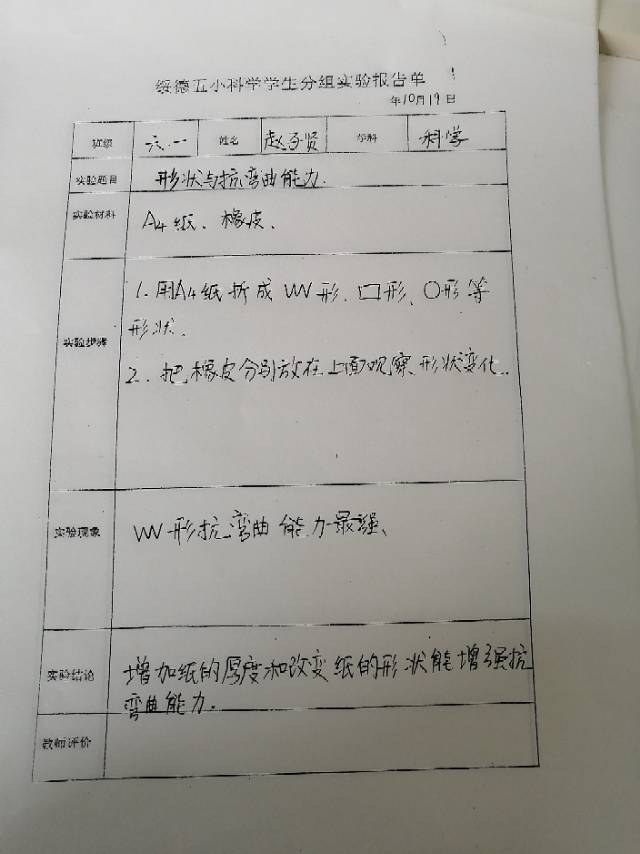 绥德五小科学学生分组实验报告单
年10月19日
班级 六.一 姓名 赵子贤 学科 科学
实验题目 形状与抗弯曲能力.
实验材料 A4纸、橡皮.
实验步骤
1. 用A4纸折成 VVV 形、口形、〇形等
形状.
2. 把橡皮分别放在上面观察形状变化.
实验现象 VVV形抗弯曲能力最强、
实验结论 增加纸的厚度和改变纸的形状能增强抗
弯曲能力.
教师评价